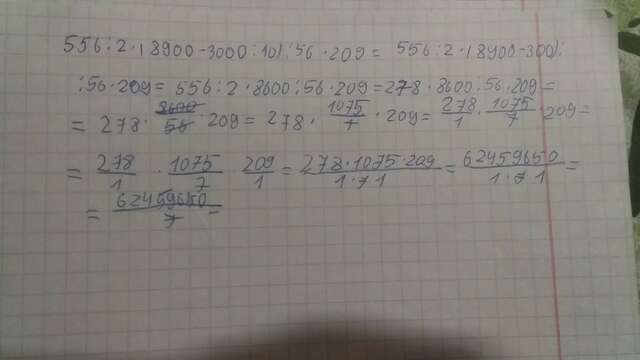 556:2·(8900-3000:10):56·209= 556:2·(8900-300):
:56·209= 556:2·8600:56·209=278·8600:56·209=
= 278· 8600/56 ·209= 278· 1075/7 ·209= 278/1 · 1075/7 ·209=
= 278/1 · 1075/7 · 209/1 = 278·1075·209/1·7·1 = 62459650/1·7·1 =
= 62459650/7 =